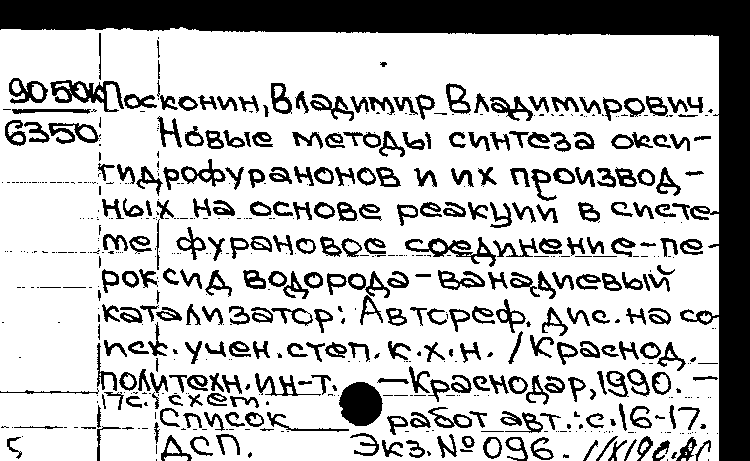 9050К Посконин, Владимир Владимирович.
6350 Новые методы синтеза окси-
гидрофуранонов и их производ-
ных на основе реакций в систе-
ме фурановое соединение-пе-
роксид водорода-ванадиевый
катализатор: Автореф. дис. на со-
иск. учен. степ. к. х. н. / Краснод.
политехн. ин-т. — Краснодар, 1990. —
с. схем.
Список работ авт.: с. 16-17.
ДСП. Экз. № 096.